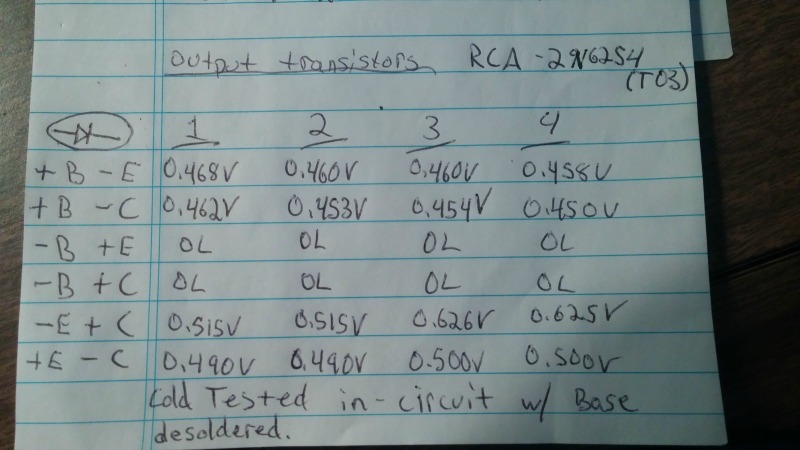 Output transistors RCA - 2N6254
(TO3)
1 2 3 4
+ B - E 0.468V 0.460V 0.460V 0.458V
+ B - C 0.462V 0.453V 0.454V 0.450V
- B + E OL OL OL OL
- B + C OL OL OL OL
- E + C 0.515V 0.515V 0.626V 0.625V
+ E - C 0.490V 0.490V 0.500V 0.500V
Cold Tested in-circuit w/ Base
desoldered.